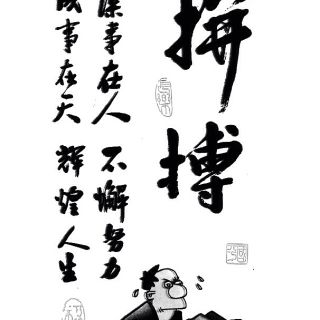 拼搏
谋事在人 不懈努力
成事在天 輝煌人生